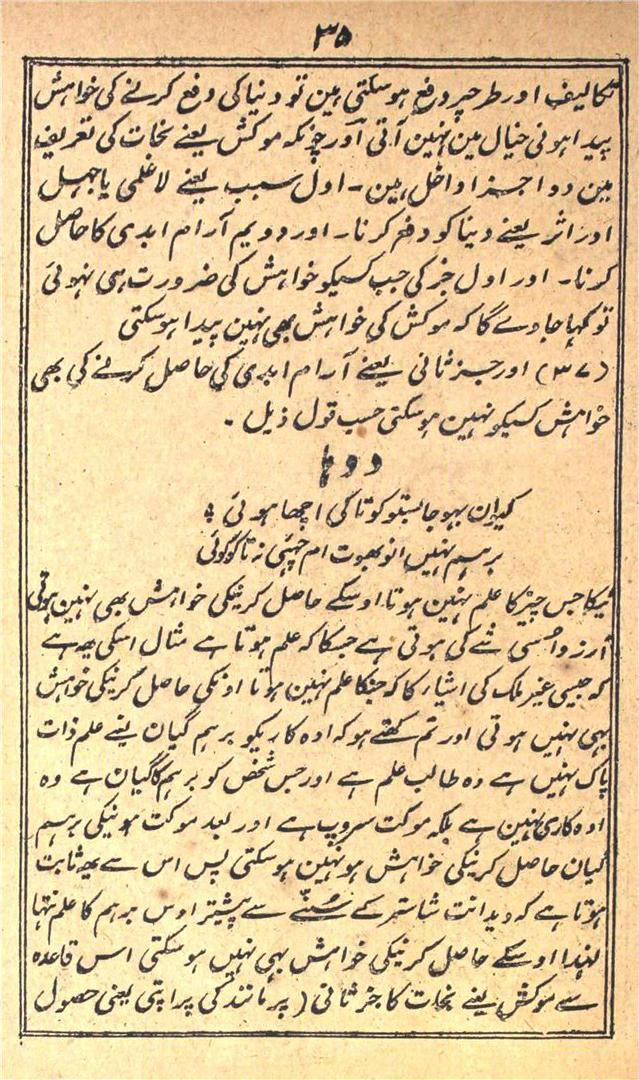 ۳۵
تکالیف اور طرح پر دفع ہو سکتی ہین تو دنیا کی دفع کرنے کی خواہش
پیدا ہونی خیال مین نہین آتی اور چونکہ موکش یعنے نجات کی تعریف
مین دو اجزا داخل ہین ۔ اول سبب یعنے لاعلمی یا جہل
اور اثر یعنے دینا کو دفع کرنا ۔ اور دویم آرام ابدی کا حاصل
کرنا ۔ اور اول جز کی جب کسیکو خواہش کی ضرورت ہی نہوئی
تو کہا جاوے گا کہ موکش کی خواہش بھی نہین پیدا ہو سکتی
(۳۷) اور جز ثانی یعنے آرام ابدی کی حاصل کرنے کی بھی
خواہش کسیکو نہین ہو سکتی حسب قول ذیل ۔
دوہا
کیران بہو جا بستو کو تا کی اچھا ہوئی ؞
برہم نہیں انوبھوت ام چہئی نہ تا کو کوئی
ٹیکا جس چیز کا علم نہین ہوتا اوسکے حاصل کرنیکی خواہش بھی نہین ہوتی
آرزو اسی شے کی ہوتی ہے جسکا کہ علم ہوتا ہے مثال اسکی یہ ہے
کہ جیسی غیر ملک کی اشیاء کا کہ جنکا علم نہین ہوتا اونکی حاصل کرنیکی خواہش
بہی نہیں ہوتی اور تم کہتے ہو کہ ادہکاریکو برہم گیان یعنے علم ذات
پاک نہیں ہے وہ طالب علم ہے اور جس شخص کو برہم کا گیان ہے وہ
ادہکاری نہین ہے بلکہ موکت سروپ ہے اور بعد موکت ہونیکی برہم
گیان حاصل کرنیکی خواہش ہو نہین ہو سکتی پس اس سے یہ ثابت
ہوتا ہے کہ ویدانت شاستر کے سننے سے پیشتر اوس برہم کا علم نتہا
لہٰذا اوسکے حاصل کرنیکی خواہش بہی نہیں ہو سکتی اس قاعدہ
سے موکش یعنے نجات کا جز ثانی ( پرمانند کی پراپتی یعنی حصول